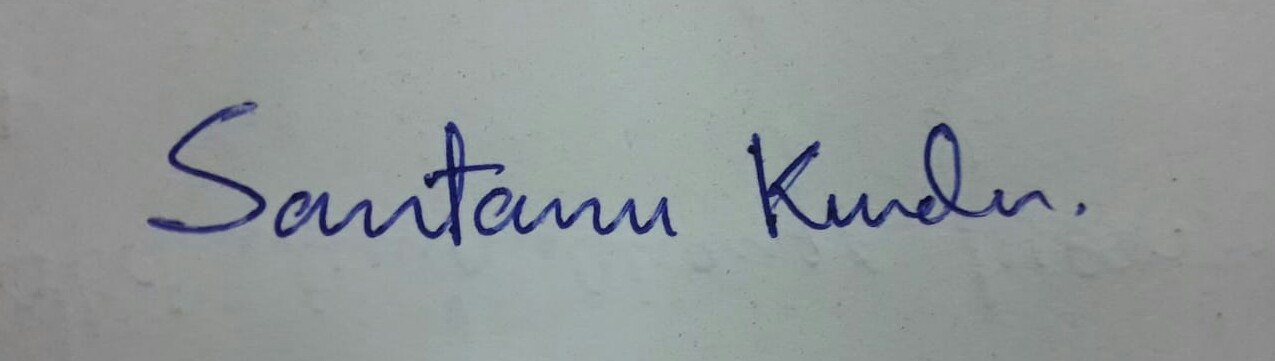 Santanu Kundu.